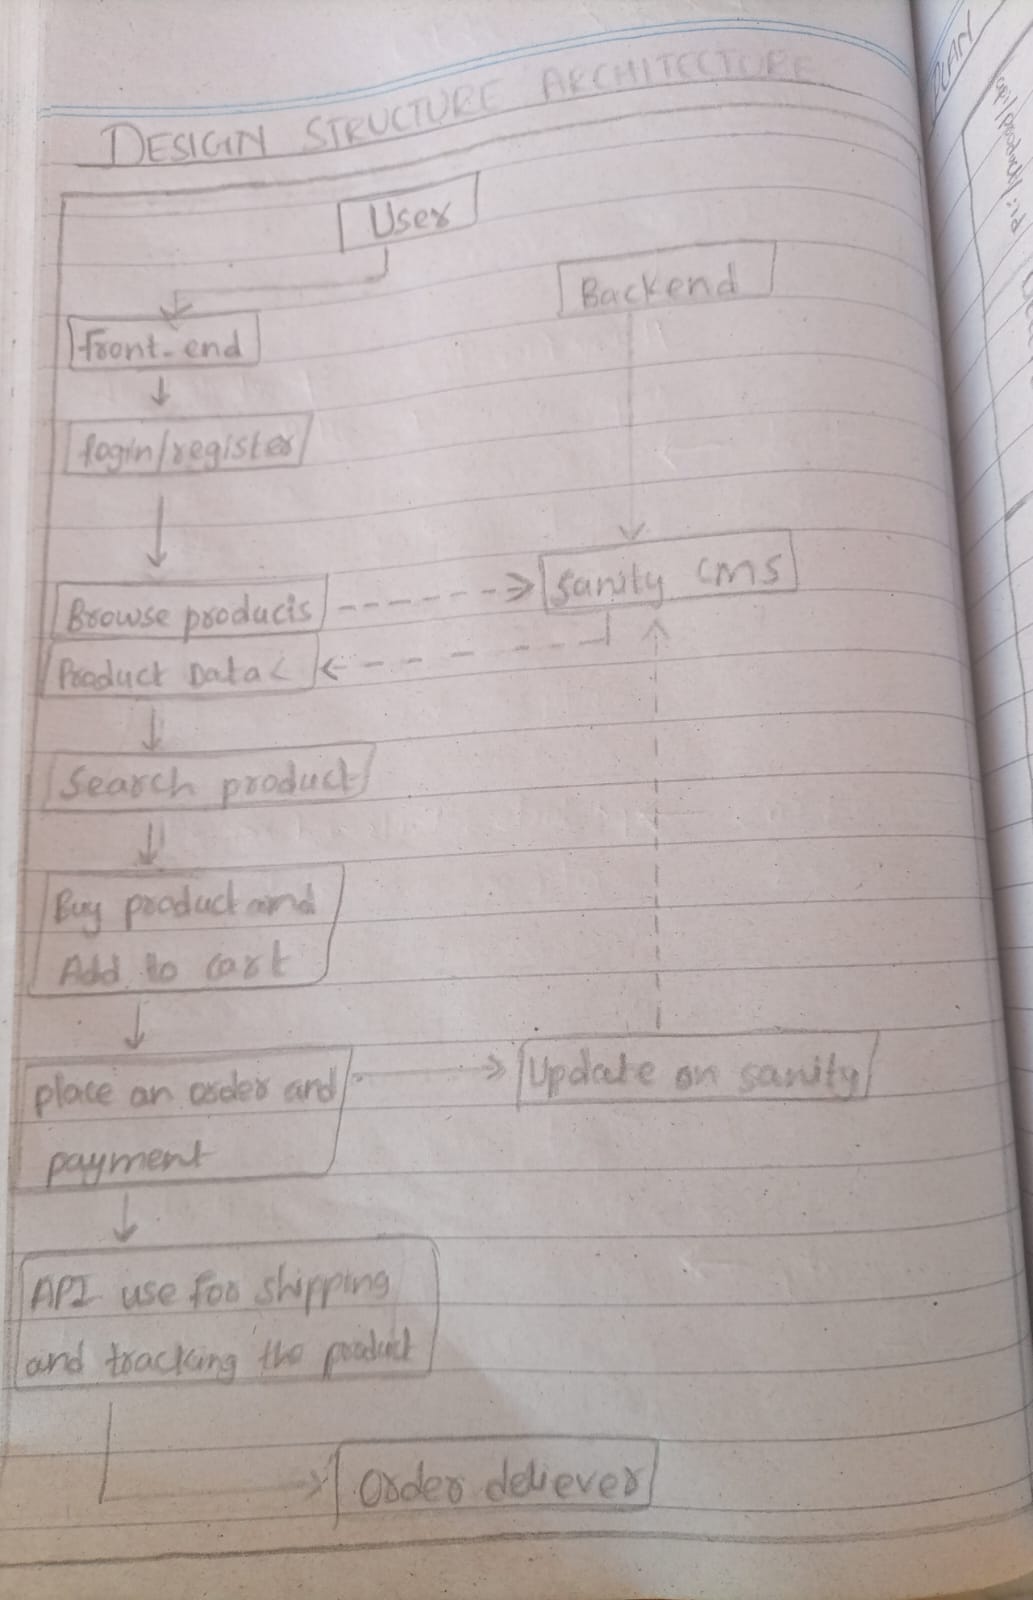 DESIGN STRUCTURE ARCHITECTURE
User
Backend
front-end
login/register
Browse producis
Sanity CMS
Product Data <
Search product
Buy product and
Add to cart
place an order and
payment
Update on sanity
API use for shipping
and tracking the product
Order deliever
PLAN
api/products/:id